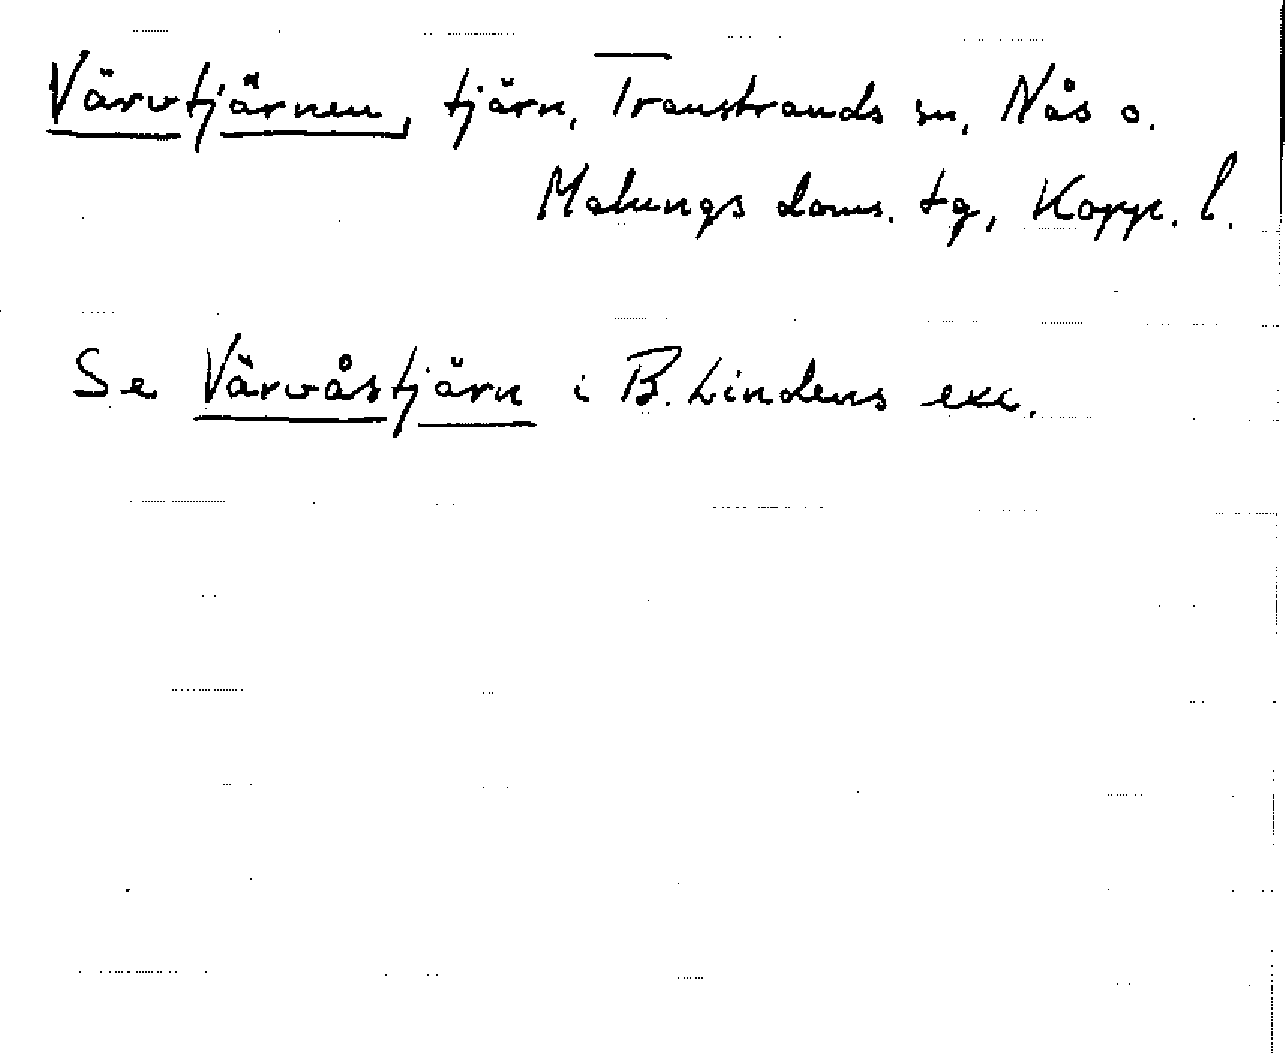 Värvtjärnen, tjärn, Transtrands sn, Nås o.
Malungs doms. tg, Kopp. l.
Se Värvåstjärn i B. Lindens exc.